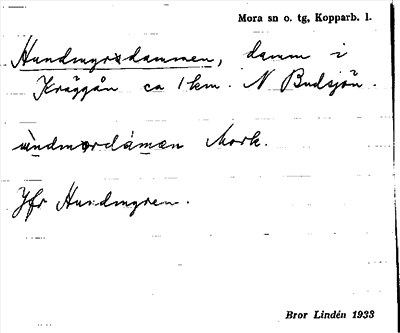 Mora sn o. tg, Kopparb. l.
Hundmyrsdammen, damm i
Kräggån ca 1 km. N Budsjön.
ùndmərdámən Mork.
Jfr Hundmyren.
Bror Lindén 1933